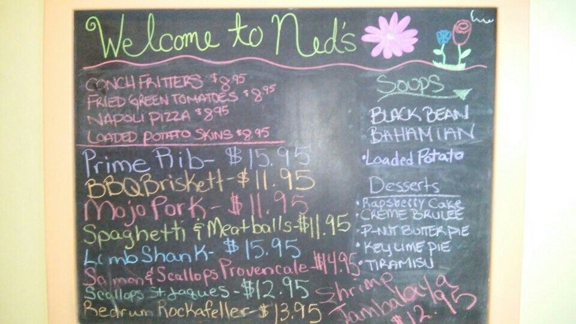 Welcome to Ned's
CONCH FRITTERS $8.95
FRIED GREEN TOMATOES $8.95
NAPOLI PIZZA $8.95
LOADED POTATO SKINS $8.95
Prime Rib- $15.95
BBQ Briskett- $11.95
Mojo Pork- $11.95
Spaghetti & Meatballs- $11.95
Lamb Shank- $15.95
Salmon & Scallops Provencale- $14.95
Scallops St Jaques- $12.95
Redrum Rockafeller- $13.95
Shrimp
Jambalaya
$12.95
Soups
BLACK BEAN
BAHAMIAN
•Loaded Potato
Desserts
•Rapsberry Cake
•CREME BRULEE
•P-NUT BUTTER PIE
•KEY LIME PIE
•TIRAMISU